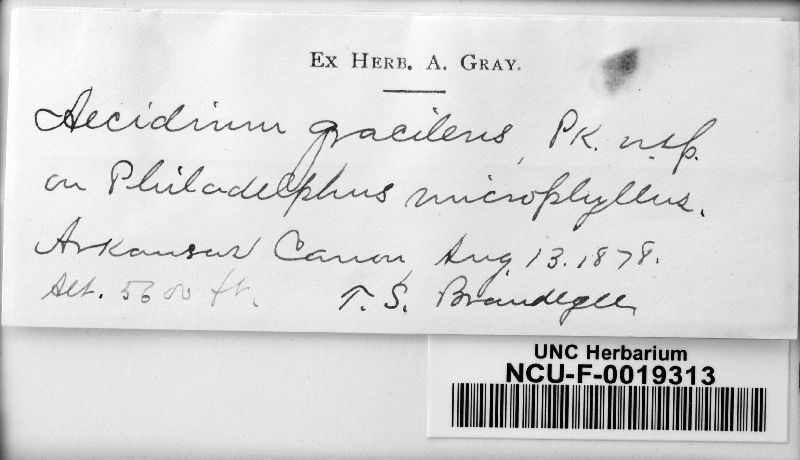 Ex Herb. A. Gray.
Aecidium gracilens, Pk. n.sp.
on Philadelphus microphyllus.
Arkansas Canon, Aug. 13. 1878.
Alt. 5600 ft. T. S. Brandegee
UNC Herbarium
NCU-F-0019313